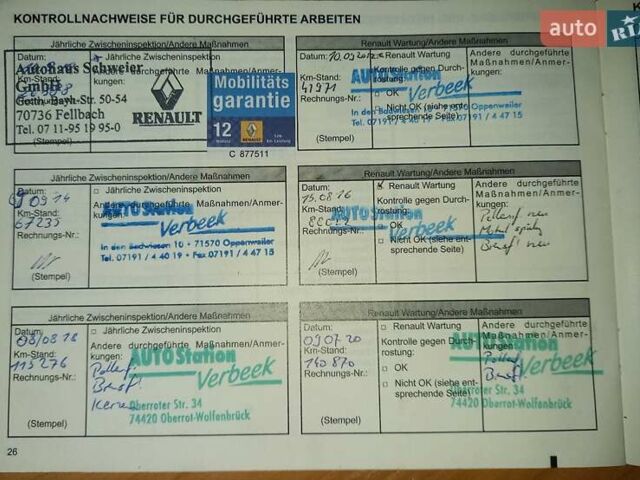 KONTROLLNACHWEISE FÜR DURCHGEFÜHRTE ARBEITEN
auto RIA
Jährliche Zwischeninspektion/Andere Maßnahmen
Datum:
Autohaus Schweier
GmbH
Gotth.-Bayh-Str. 50-54
70736 Fellbach
Tel. 07 11-95 19 95-0
(Stempel)
RENAULT
Mobilitäts
garantie
12
C 877511
Renault Wartung/Andere Maßnahmen
Datum:
Renault Wartung
Km-Stand:
41971
Rechnungs-Nr.:
Kontrolle gegen Durch-
rostung:
OK
Nicht OK (siehe ent-
sprechende Seite)
Andere durchgeführte
Maßnahmen/Anmer-
kungen:
AUTO Station
Verbeek
In den Badwiesen 10 • 71570 Oppenweiler
Tel. 07191 / 4 40 19 • Fax 07191 / 4 47 15
(Stempel)
Jährliche Zwischeninspektion/Andere Maßnahmen
Datum:
09 14
Km-Stand:
67235
Rechnungs-Nr.:
Jährliche Zwischeninspektion
Andere durchgeführte Maßnahmen/Anmer-
kungen:
AUTO Station
Verbeek
In den Badwiesen 10 • 71570 Oppenweiler
Tel. 07191 / 4 40 19 • Fax 07191 / 4 47 15
(Stempel)
Renault Wartung/Andere Maßnahmen
Datum:
15.08 16
Km-Stand:
Rechnungs-Nr.:
Renault Wartung
Kontrolle gegen Durch-
rostung:
OK
Nicht OK (siehe ent-
sprechende Seite)
Andere durchgeführte
Maßnahmen/Anmer-
kungen:
AUTO Station
Verbeek
(Stempel)
Jährliche Zwischeninspektion/Andere Maßnahmen
Datum:
08/08 18
Km-Stand:
115276
Rechnungs-Nr.:
Jährliche Zwischeninspektion
Andere durchgeführte Maßnahmen/Anmer-
kungen:
AUTO Station
Verbeek
Oberroter Str. 34
74420 Oberrot-Wolfenbrück
(Stempel)
Renault Wartung/Andere Maßnahmen
Datum:
09 07 20
Km-Stand:
140 870
Rechnungs-Nr.:
Renault Wartung
Kontrolle gegen Durch-
rostung:
OK
Nicht OK (siehe ent-
sprechende Seite)
Andere durchgeführte
Maßnahmen/Anmer-
kungen:
AUTO Station
Verbeek
Oberroter Str. 34
74420 Oberrot-Wolfenbrück
(Stempel)
26